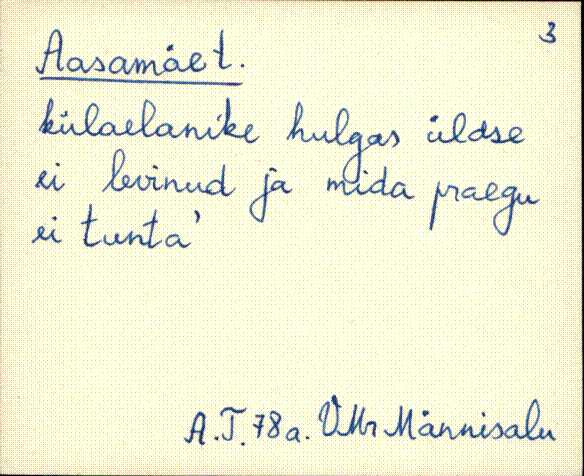 3
Aasamäet.
külaelanike hulgas üldse
ei levinud ja mida praegu
ei tunta'
A.T. 78a. VMr Männisalu